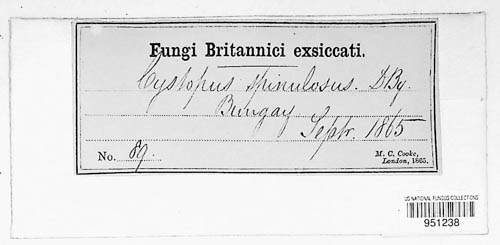 Fungi Britannici exsiccati.
Cystopus spinulosus. DBy.
Bungay
Septr. 1865
No. 89
M. C. Cooke,
London, 1865.
US NATIONAL FUNGUS COLLECTIONS
951238